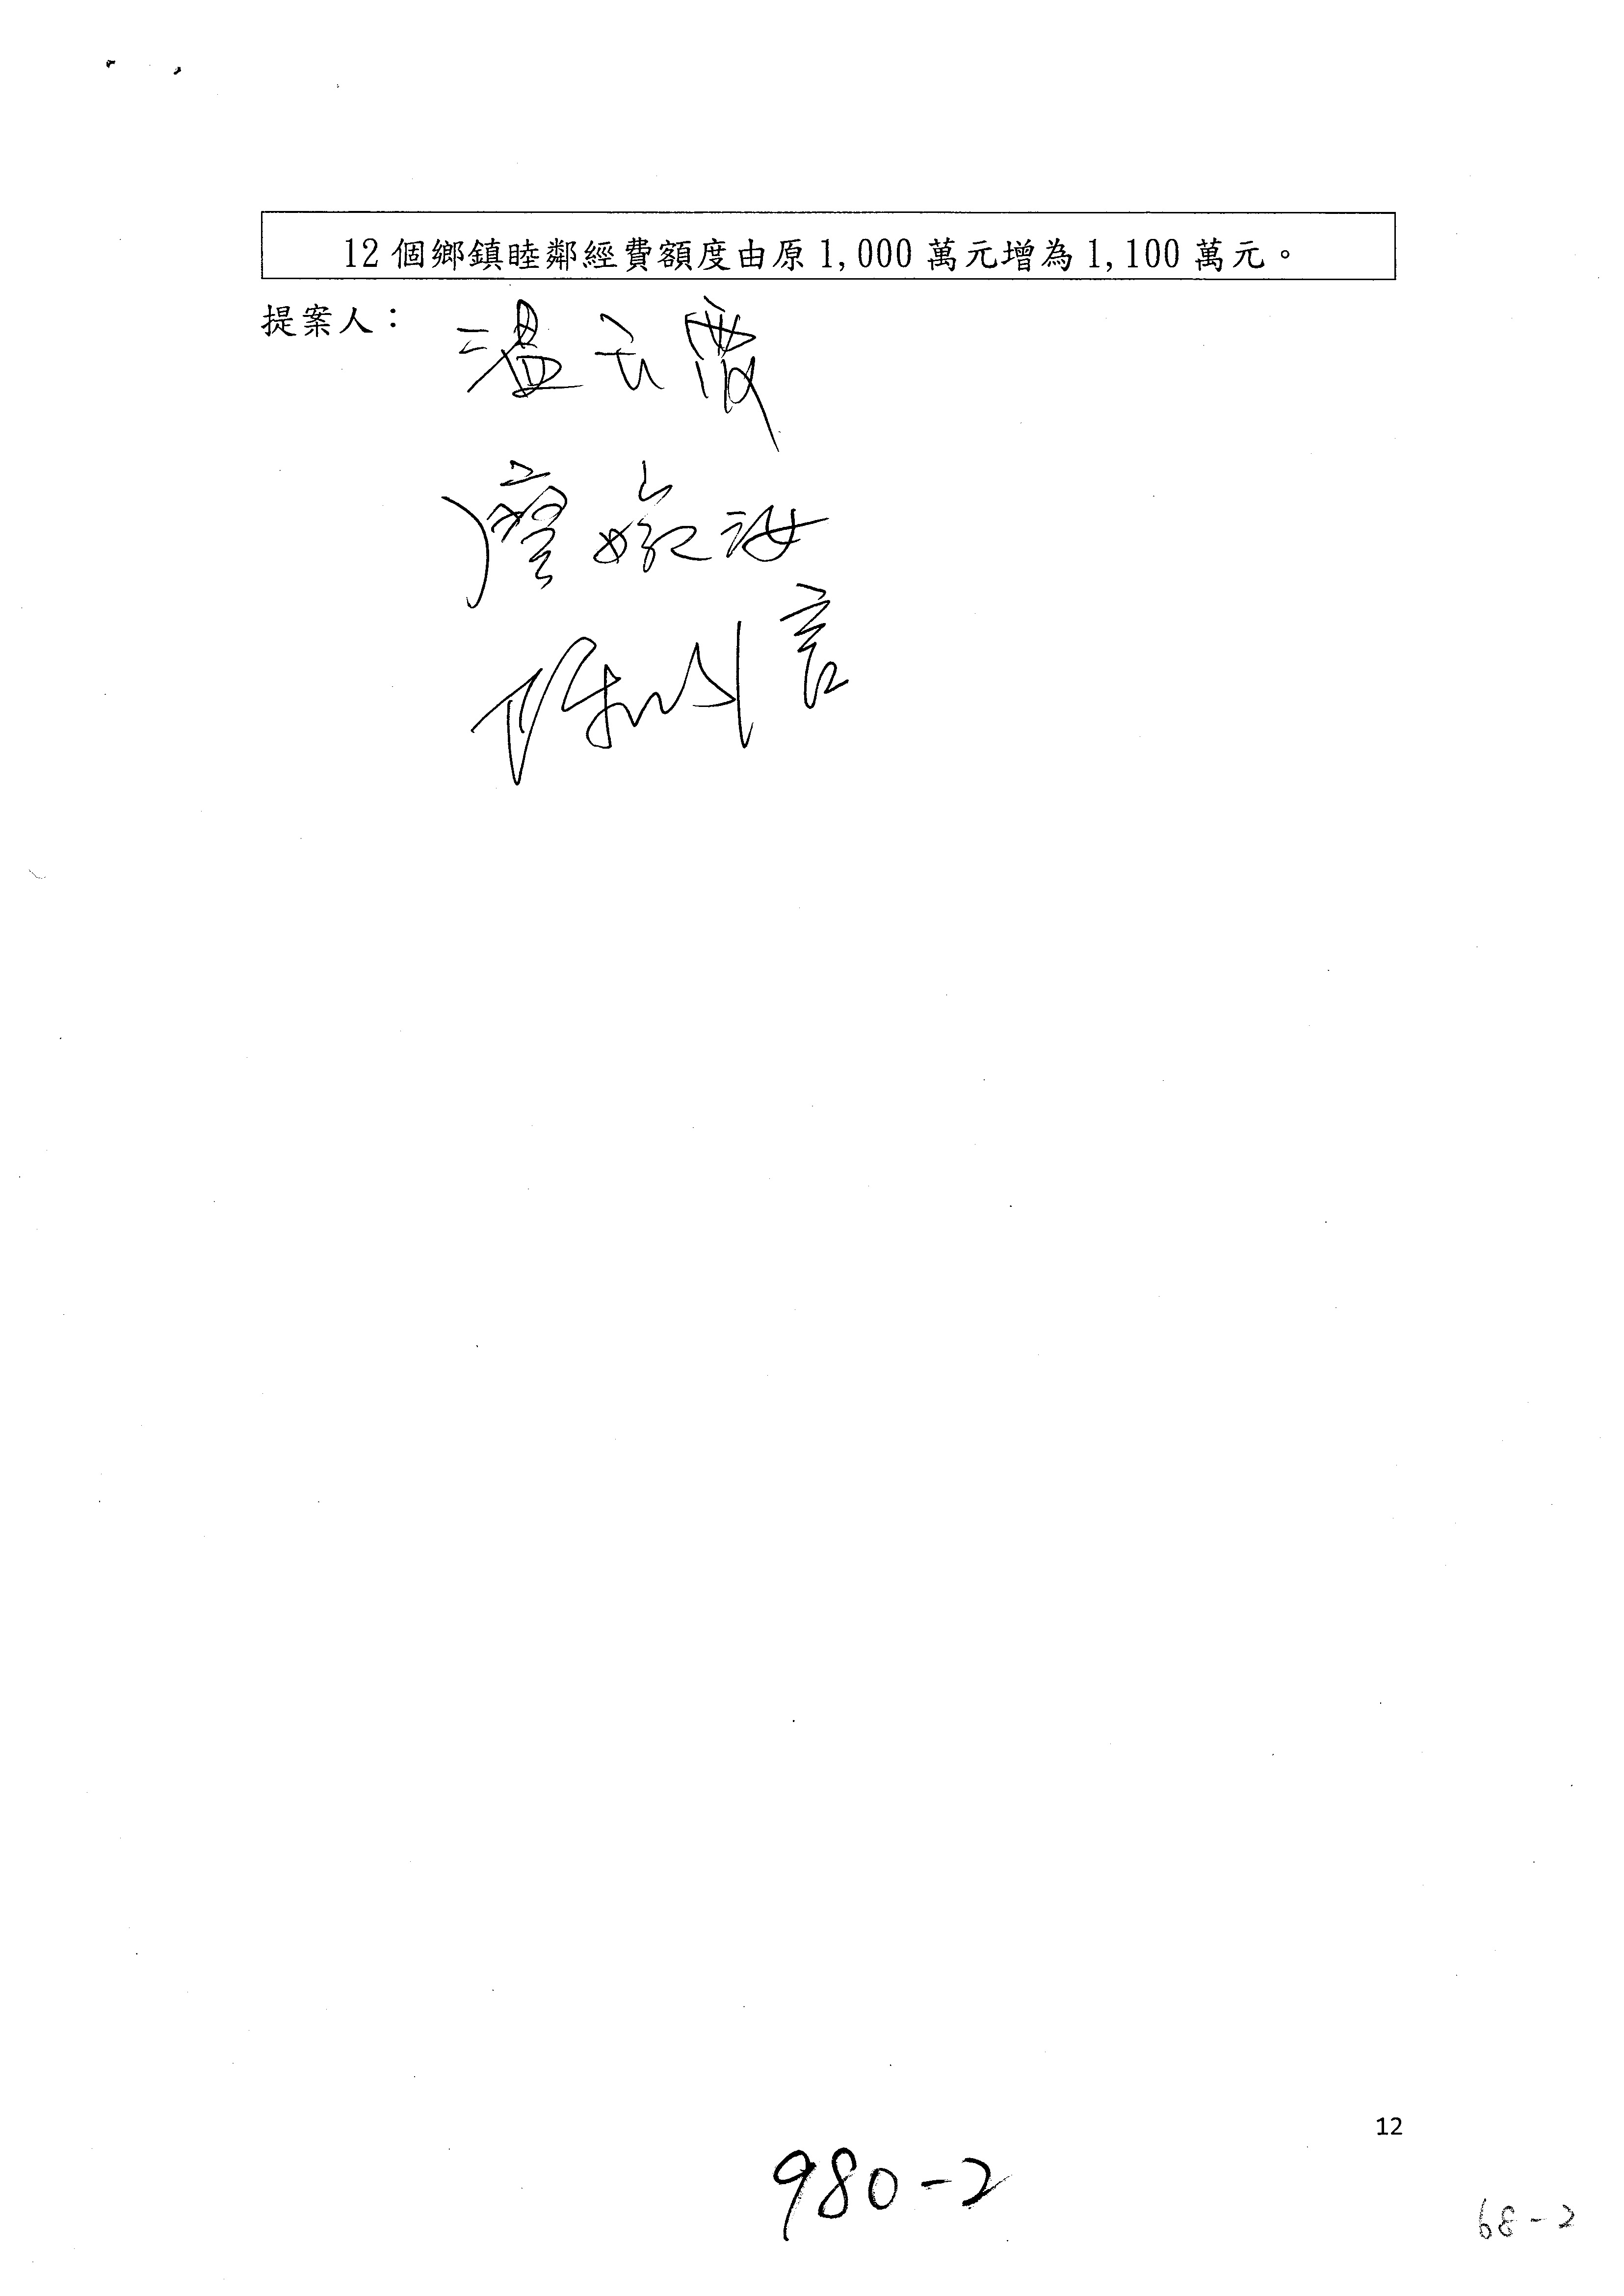 12個鄉鎮睦鄰經費額度由原1,000萬元增為1,100萬元。
提案人：
溫玉霞
廖婉汝
陳以信
12
980-2
68-2